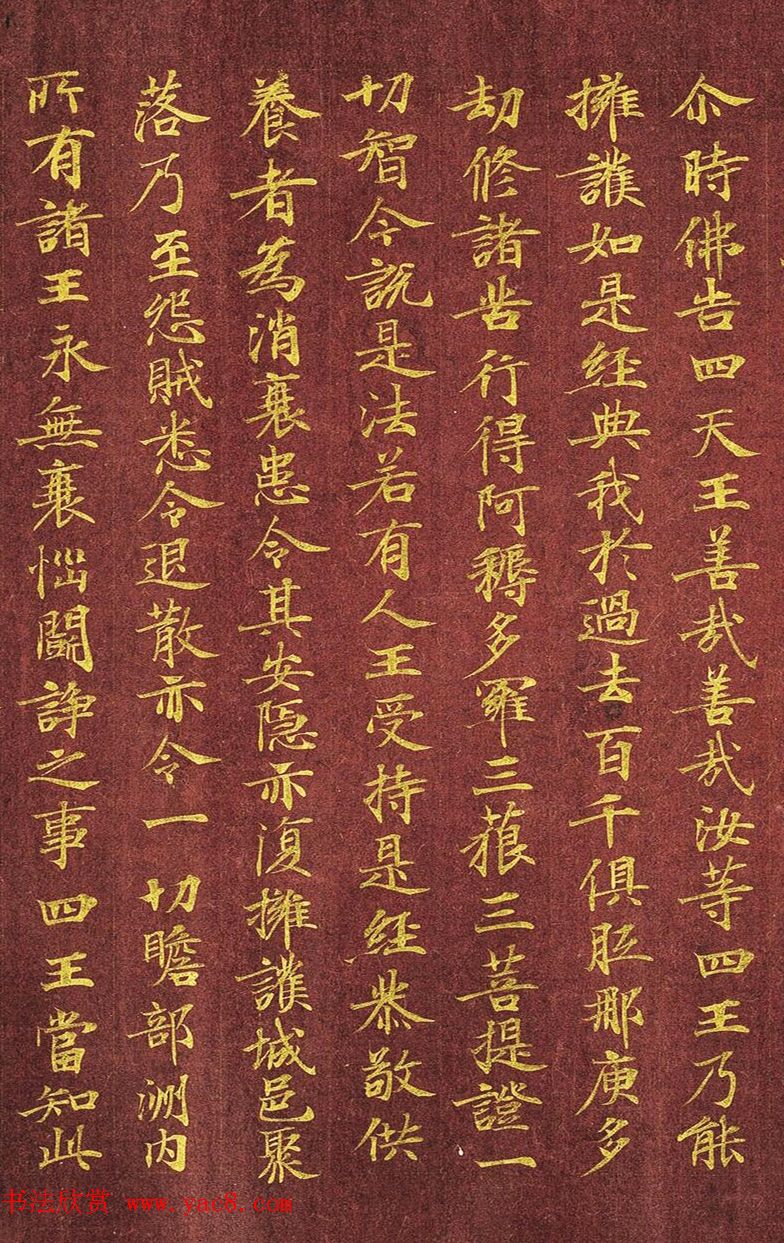 尒時佛告四天王善哉善哉汝等四王乃能
擁護如是經典我於過去百千俱胝那庾多
劫修諸苦行得阿耨多羅三藐三菩提證一
切智今說是法若有人王受持是經恭敬供
養者為消襄患令其安隱亦復擁護城邑聚
落乃至怨賊悉令退散亦令一切贍部洲内
所有諸王永無襄惱鬪諍之事四王當知此
书法欣赏 www.yac8.com